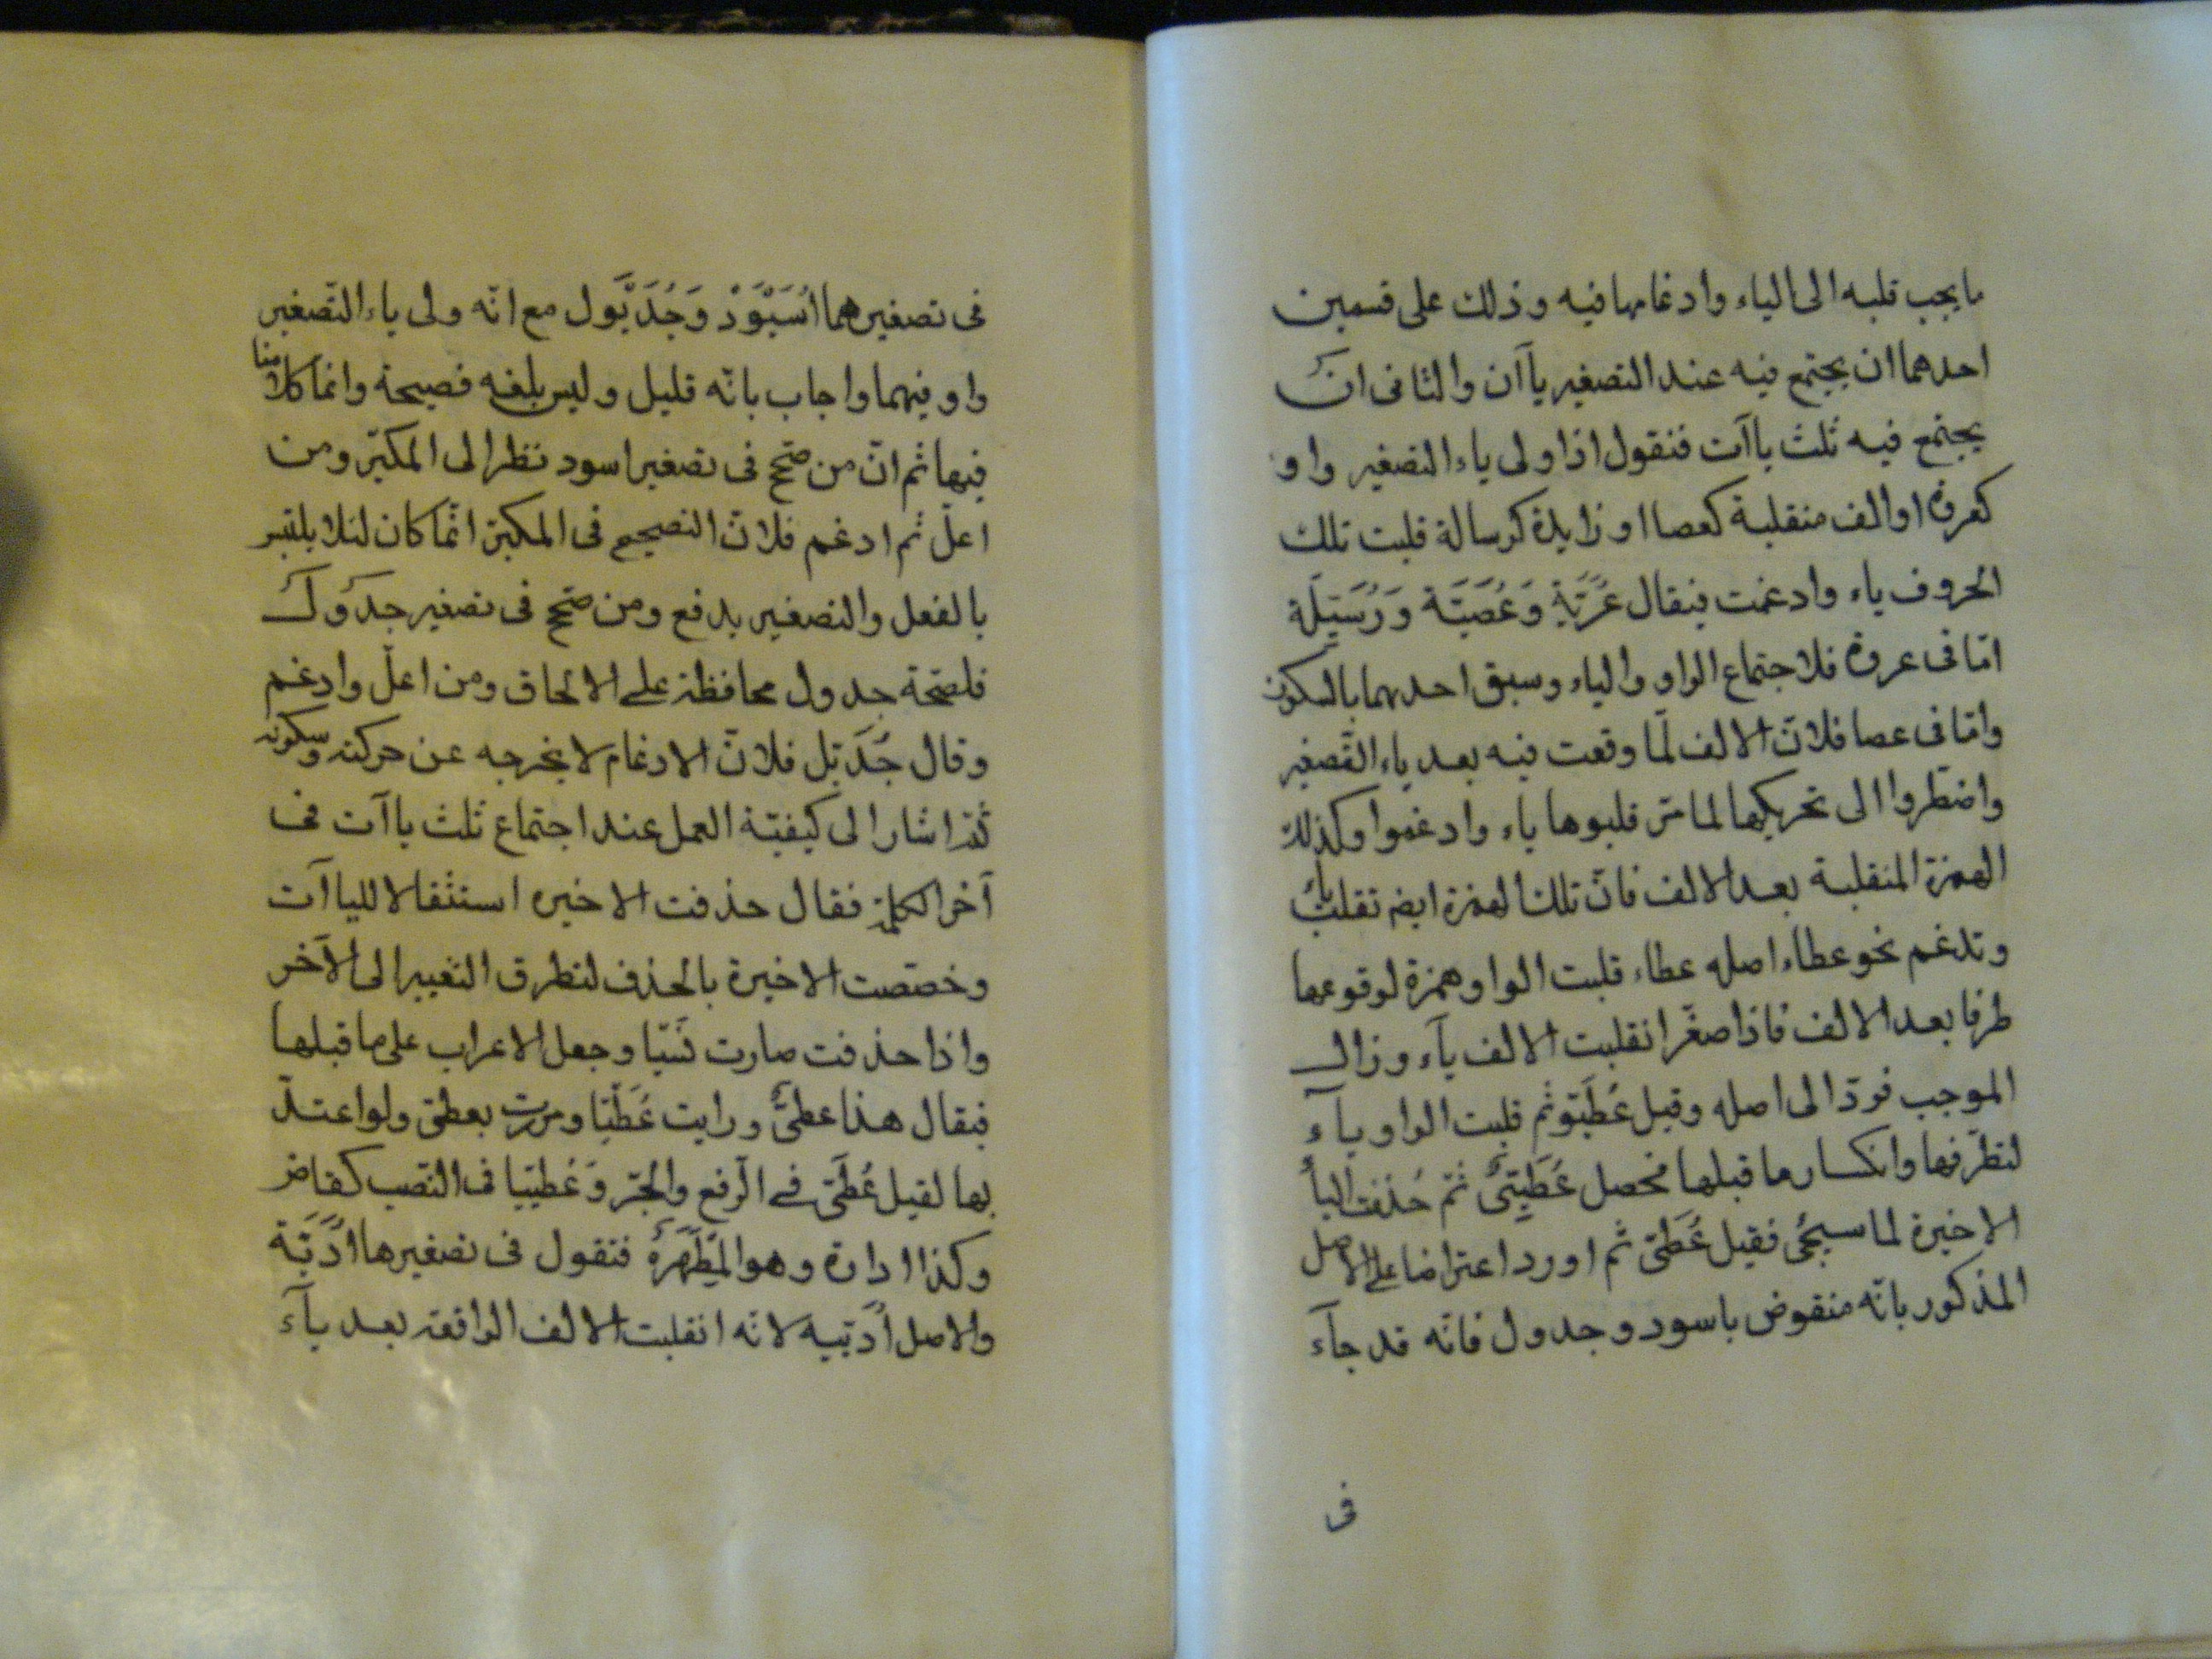 ما يجب قلبه الى الياء وادغامها فيه وذلك على قسمين
احدهما ان يجتمع فيه عند التصغير ياآن والثانى ان
يجتمع فيه ثلث ياآت فنقول اذا ولى ياء التصغير واو
كعروة او الف منقلبة كعصا او زايدة كرسالة قلبت تلك
الحروف ياء وادغمت فيقال عُرَيَّة وَعُصَيَّة وَرُسَيِّلَة
امّا فى عروة فلاجتماع الواو والياء وسبق احدهما بالسكون
وامّا فى عصا فلانّ الالف لمّا وقعت فيه بعد ياء التّصغير
واضطروا الى تحريكها لما مرّ قلبوها ياء وادغموا وكذلك
الهمزة المنقلبة بعد الالف فانّ تلك الهمزة ايضم تقلب ياء
وتدغم نحو عطاء اصله عطاء قلبت الواو همزة لوقوعها
طرفا بعد الالف فاذا صغّر انقلبت الالف يآء وزال
الموجب فردّ الى اصله وقيل عُطَيِّو ثم قلبت الواو يآء
لتطرّفها وانكسار ما قبلها فحصل عُطَيِّىٌ ثمّ حُذفت اليأ
الاخيرة لما سيجئ فقيل عُطَىّ ثم اورد اعتراضا على الاصل
المذكور بانّه منقوض باسود وجدول فانّه قد جآء
فى
فى تصغيرهما اُسَيْوَدْ وَجُدَيْوَل مع انّه ولى ياء التّصغير
واو فيهما واجاب بانّه قليل وليس بلغه فصيحة وانما كلامنا
فيها ثم انّ من صحّح فى تصغير اسود نظر الى المكبّر ومن
اعلّ ثم ادغم فلانّ التصحيح فى المكبّر انّما كان لئلا يلتبس
بالفعل والتصغير يدفع ومن صحّح فى تصغير جدول
فلصحة جدول محافظة على الالحاق ومن اعلّ وادغم
وقال جُدَيّل فلانّ الادغام لا يخرجه عن حركته وسكونه
ثمّ اشار الى كيفيّة العمل عند اجتماع ثلث ياآت فى
آخر الكلمة فقال حذفت الاخيره استثقالا للياآت
وخصّصت الاخيرة بالحذف لتطرق التغيير الى الآخر
واذا حذفت صارت نَسْيًا وجعل الاعراب على ما قبلها
فيقال هذا عطىٌّ ورايت عُطَيًّا ومررت بعطىّ ولو اعتدّ
بها لقيل عُطَىّ فے الرّفع والجّر وَعُطَيِّيا فى النّصب كقاض
وكذا اداوة وهو المِطْهَرَةُ فتقول فى تصغيرها اُدَيَّة
والاصل اُدَيّيه لانّه انقلبت الالف الواقعة بعد يآء